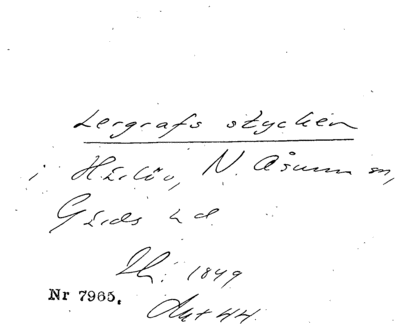 Lergrafs stycken
i Härlöv, N. Åsum sn,
Gärds hd
1849
Nr 7965.
Akt 44